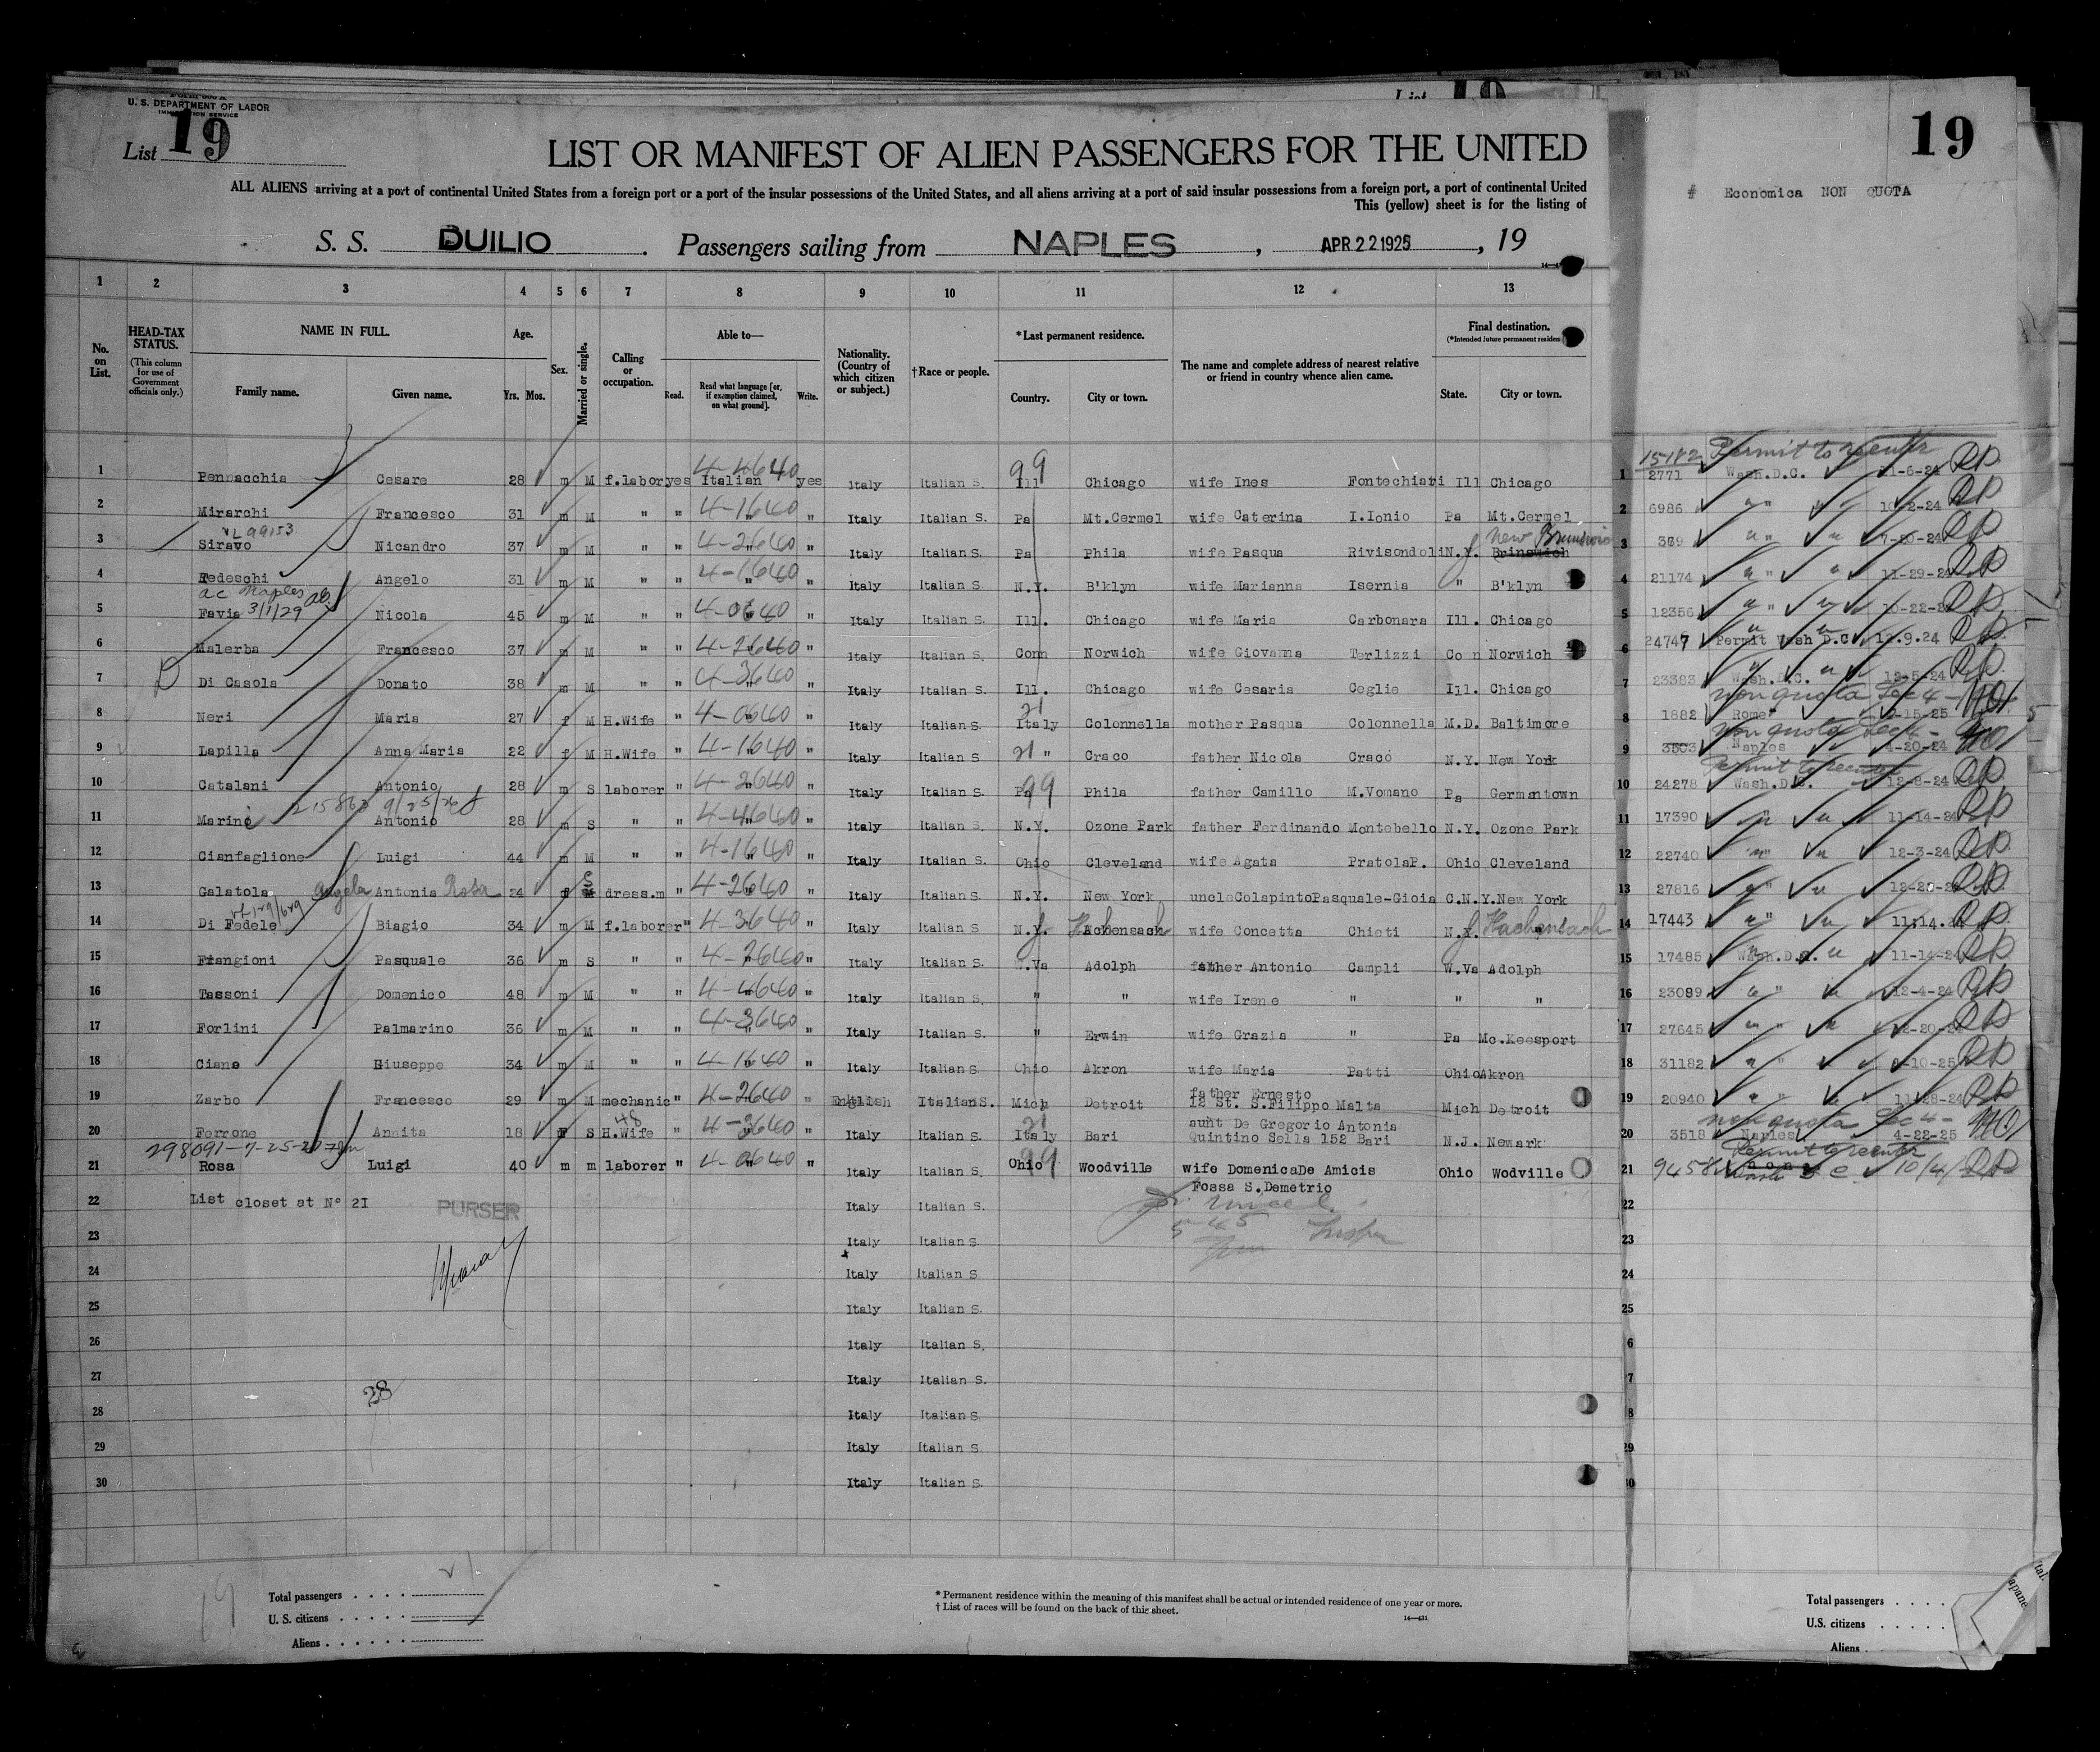 U. S. DEPARTMENT OF LABOR
IMMIGRATION SERVICE
List 19
19
LIST OR MANIFEST OF ALIEN PASSENGERS FOR THE UNITED
# Economica NON QUOTA
ALL ALIENS arriving at a port of continental United States from a foreign port or a port of the insular possessions of the United States, and all aliens arriving at a port of said insular possessions from a foreign port, a port of continental United
This (yellow) sheet is for the listing of
S. S. DUILIO. Passengers sailing from NAPLES, APR 22 1925, 19
1 2 3 4 5 6 7 8 9 10 11 12 13
No. on List.
HEAD-TAX STATUS.
(This column for use of Government officials only.)
NAME IN FULL.
Family name. Given name.
Age.
Yrs. Mos.
Sex.
Married or single.
Calling or occupation.
Able to—
Read. Read what language [or, if exemption claimed, on what ground]. Write.
Nationality. (Country of which citizen or subject.)
†Race or people.
*Last permanent residence.
Country. City or town.
The name and complete address of nearest relative or friend in country whence alien came.
Final destination.
(*Intended future permanent residen
State. City or town.
15182 Permit to reenter
1 Pennacchia Cesare 28 m M f.labor yes Italian yes Italy Italian S. Ill Chicago wife Ines Fontechiari Ill Chicago 1 2771 Wash.D.C. 11-6-24
2 Mirarchi Francesco 31 m M " " 4-1640 " Italy Italian S. Pa Mt.Cermel wife Caterina I.Ionio Pa Mt.Cermel 2 6986 "
New Brunswic
3 Siravo Nicandro 37 m M " " 4-2640 " Italy Italian S. Pa Phila wife Pasqua Rivisondoli N.Y. Brinswich 3 369 " 7-20-24
4 Tedeschi Angelo 31 m M " " 4-1640 " Italy Italian S. N.Y. B'klyn wife Marianna Isernia " B'klyn 4 21174 " 11-29-24
ac Naples
5 Favia 3/1/29 Nicola 45 m M " " 4-0640 " Italy Italian S. Ill. Chicago wife Maria Carbonara Ill. Chicago 5 12356 "
6 Malerba Francesco 37 m M " " 4-2640 " Italy Italian S. Conn Norwich wife Giovanna Terlizzi Conn Norwich 6 24747 Permit Wash D.C. 12.9.24
7 Di Casola Donato 38 m M " " 4-3640 " Italy Italian S. Ill. Chicago wife Cesaria Ceglie Ill. Chicago 7 23383 Wash.D.C. 12-5-24
non quota Sec 4
8 Neri Maria 27 f M H.Wife " 4-0640 " Italy Italian S. Italy Colonnella mother Pasqua Colonnella M.D. Baltimore 8 1882 Rome
non quota Sec 4
9 Lapilla Anna Maria 22 f M H.Wife " 4-1640 " Italy Italian S " Craco father Nicola Craco N.Y. New York 9 3503 Naples 4-20-24
Permit to reenter
10 Catalani Antonio 28 m S laborer " 4-2640 " Italy Italian S. Pa Phila father Camillo M.Vomano Pa Germantown 10 24278 Wash.D.C. 12-8-24
11 Marino Antonio 28 m S " " 4-4640 " Italy Italian S. N.Y. Ozone Park father Ferdinando Montebello N.Y. Ozone Park 11 17390 " 11-14-24
12 Cianfaglione Luigi 44 m M " " 4-1640 " Italy Italian S. Ohio Cleveland wife Agata PratolaP. Ohio Cleveland 12 22740 " 12-3-24
13 Galatola Angela Antonia Rosa 24 f S dress.m " 4-2640 " Italy Italian S. N.Y. New York uncleColapintoPasquale-Gioia C.N.Y.New York 13 27816 "
14 Di Fedele Biagio 34 m M f.laborer " 4-3640 " Italy Italian S N.J. Hackensack wife Concetta Chieti N.J. Hackensack 14 17443 " 11.14.
15 Frangioni Pasquale 36 m S " " 4-2640 " Italy Italian S. W.Va Adolph father Antonio Campli W.Va Adolph 15 17485 Wash.D.C. 11-14-24
16 Tassoni Domenico 48 m M " " 4-4640 " Italy Italian S. " " wife Irene " " " 16 23089 " 12-4-24
17 Forlini Palmarino 36 m M " " 4-3640 " Italy Italian S. " Erwin wife Grazia " Pa Mc.Keesport 17 27645 " 12-20-24
18 Ciano Giuseppe 34 m M " " 4-1640 " Italy Italian S. Ohio Akron wife Maria Patti Ohio Akron 18 31182 "
father Ernesto
19 Zarbo Francesco 29 m M mechanic " 4-2640 " English Italian S. Mich Detroit 12 St. S.Filippo Malta Mich Detroit 19 20940 " 11-28-24
non quota Sec 4
aunt De Gregorio Antonia
20 Ferrone Annita 18 F S H.Wife " 4-3640 " Italy Italian S. Italy Bari Quintino Sella 152 Bari N.J. Newark 20 3518 Naples 4-22-25
Permit to reenter
21 Rosa Luigi 40 m m laborer " 4-0640 " Italy Italian S. Ohio Woodville wife DomenicaDe Amicis Ohio Wodville 21 9458 10/4/
Fossa S.Demetrio
22 List closet at N° 2I PURSER Italy Italian S. 22
23 Italy Italian S. 23
24 Italy Italian S 24
25 Italy Italian S. 25
26 Italy Italian S. 6
27 Italy Italian S. 7
28 28 Italy Italian S. 8
29 Italy Italian S. 29
30 Italy Italian S. 30
Total passengers . . . .
U. S. citizens . . . . .
Aliens . . . . . .
* Permanent residence within the meaning of this manifest shall be actual or intended residence of one year or more.
† List of races will be found on the back of this sheet.
Total passengers . . . .
U.S. citizens . . . . .
Aliens .